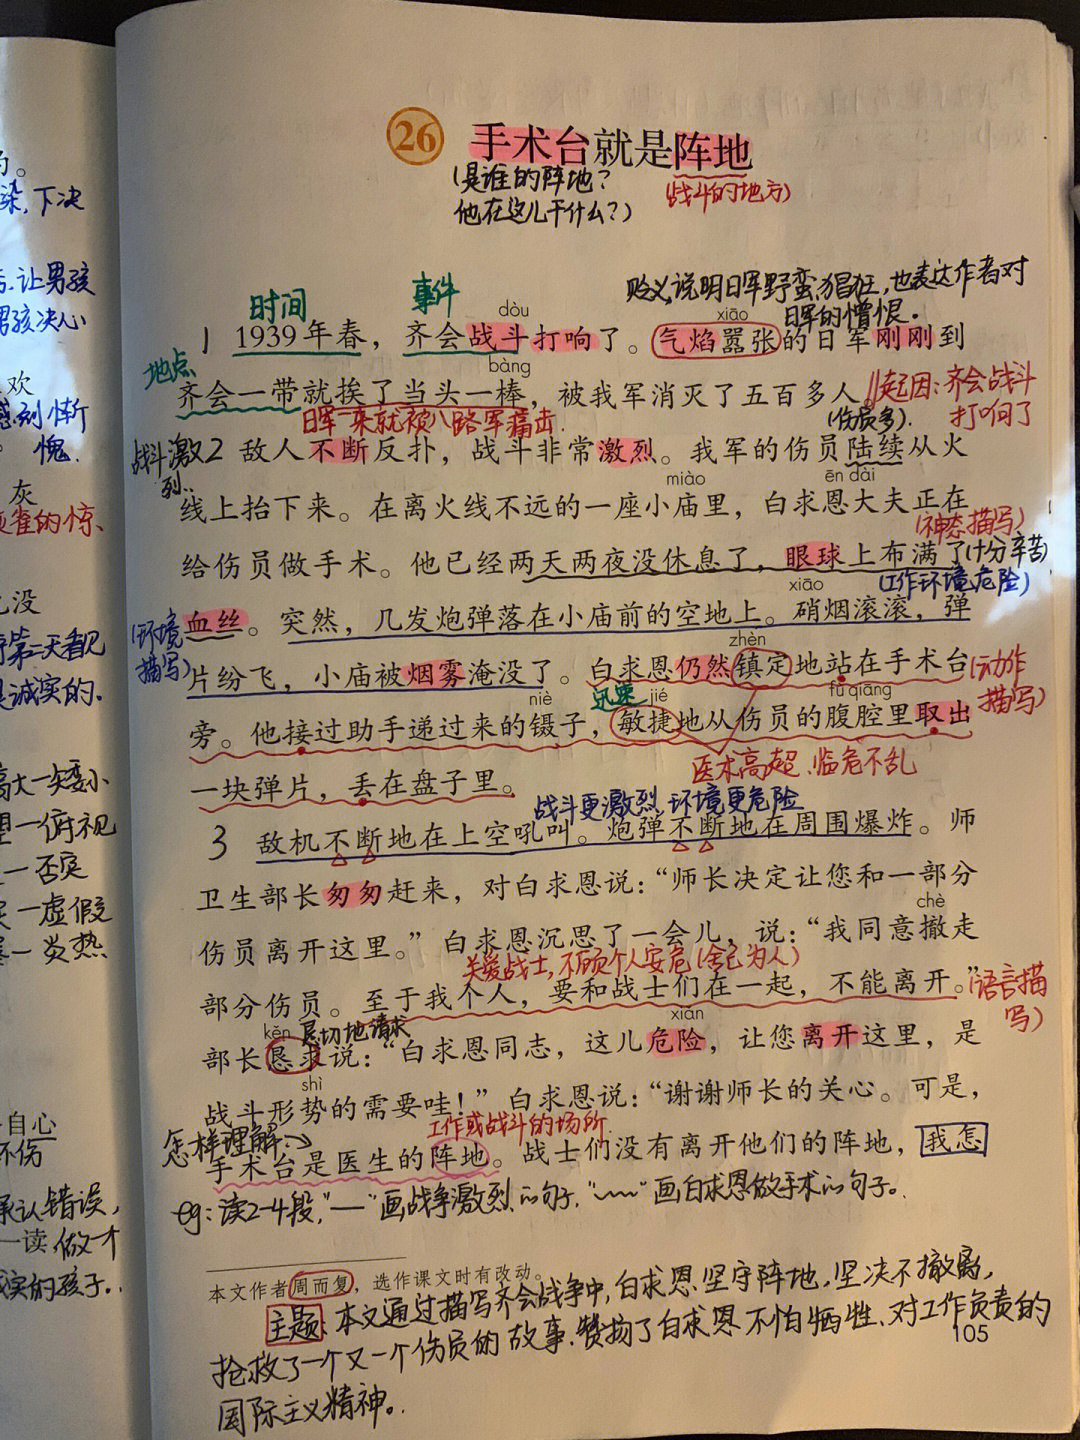 染,下决
让男孩
男孩决心
欢
感刻惭
愧.
灰
没
是诚实的.
否实
虚假
炎热
自心
不伤
承认错误,
一读,做一个
诚实的孩子..
26 手术台就是阵地
(是谁的阵地?
他在这儿干什么?)
(战斗的地方)
贬义,说明日军野蛮,猖狂,也表达作者对
日军的憎恨.
时间
事件
dòu
xiāo
1 1939年春,齐会战斗打响了。气焰嚣张的日军刚刚到
地点
bàng
齐会一带就挨了当头一棒,被我军消灭了五百多人。
起因:齐会战斗
打响了
日军一来就被八路军痛击.
(伤员多).
战斗激
烈..
2 敌人不断反扑,战斗非常激烈。我军的伤员陆续从火
miào
ēn dài
线上抬下来。在离火线不远的一座小庙里,白求恩大夫正在
(神态描写)
给伤员做手术。他已经两天两夜没休息了,眼球上布满了
(十分辛苦)
xiāo
(工作环境危险)
血丝。突然,几发炮弹落在小庙前的空地上。硝烟滚滚,弹
(环境
描写)
zhèn
片纷飞,小庙被烟雾淹没了。白求恩仍然镇定地站在手术台
(动作
描写)
niè
迅速
jié
fù qiāng
旁。他接过助手递过来的镊子,敏捷地从伤员的腹腔里取出
医术高超.临危不乱
一块弹片,丢在盘子里。
战斗更激烈.环境更危险
3 敌机不断地在上空吼叫。炮弹不断地在周围爆炸。师
卫生部长匆匆赶来,对白求恩说:“师长决定让您和一部分
chè
伤员离开这里。”白求恩沉思了一会儿,说:“我同意撤走
关爱战士,不顾个人安危(舍己为人)
部分伤员。至于我个人,要和战士们在一起,不能离开。”
(语言描
写)
kěn
恳切地请求
xiǎn
部长恳求说:“白求恩同志,这儿危险,让您离开这里,是
shì
战斗形势的需要哇!”白求恩说:“谢谢师长的关心。可是,
怎样理解:
工作或战斗的场所.
手术台是医生的阵地。战士们没有离开他们的阵地,我怎
eg:读2-4段,“——”画战争激烈的句子,“﹏﹏”画白求恩做手术的句子.
本文作者周而复,选作课文时有改动。
主题:本文通过描写齐会战争中,白求恩坚守阵地,坚决不撤离,
抢救了一个又一个伤员的故事.赞扬了白求恩不怕牺牲、对工作负责的
105
国际主义精神.